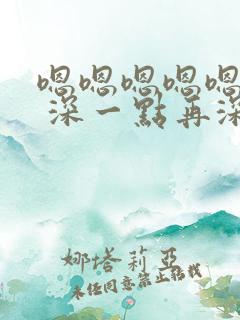 嗯嗯嗯嗯嗯
深一點再深
娜塔莉亞
未经同意禁止转载